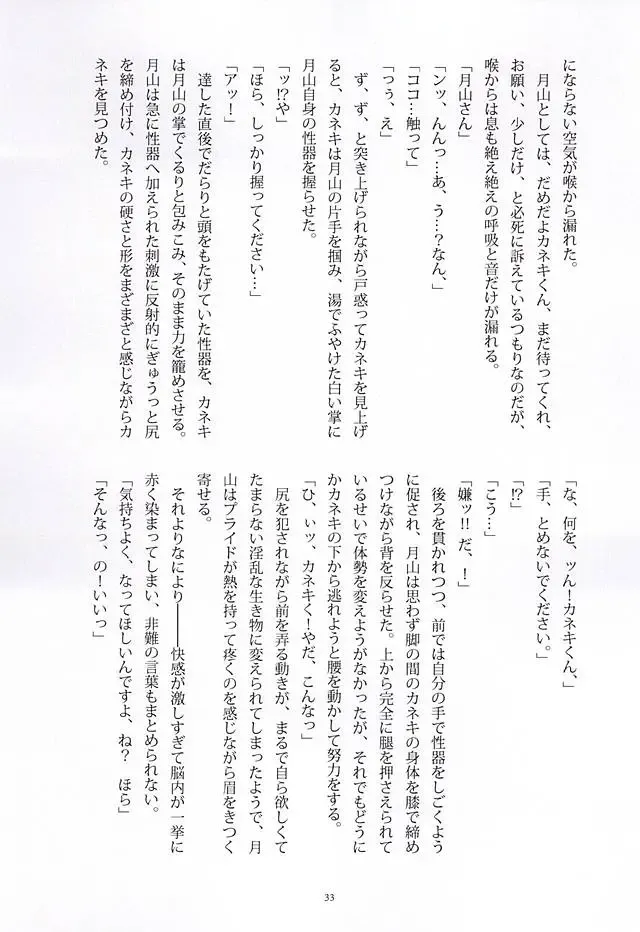 にならない空気が喉から漏れた。
月山としては、だめだよカネキくん、まだ待ってくれ、
お願い、少しだけ、と必死に訴えているつもりなのだが、
喉からは息も絶え絶えの呼吸と音だけが漏れる。
「月山さん」
「ンッ、んんっ…あ、う…？なん、」
「ココ…触って」
「っぅ、え」
ず、ず、と突き上げられながら戸惑ってカネキを見上げ
ると、カネキは月山の片手を掴み、湯でふやけた白い掌に
月山自身の性器を握らせた。
「ッ!?や」
「ほら、しっかり握ってください…」
「アッ！」
達した直後でだらりと頭をもたげていた性器を、カネキ
は月山の掌でくるりと包みこみ、そのまま力を籠めさせる。
月山は急に性器へ加えられた刺激に反射的にぎゅうっと尻
を締め付け、カネキの硬さと形をまざまざと感じながらカ
ネキを見つめた。
「な、何を、ッん！カネキくん、」
「手、とめないでください。」
「!?」
「こう…」
「嫌ッ!!だ、！」
後ろを貫かれつつ、前では自分の手で性器をしごくよう
に促され、月山は思わず脚の間のカネキの身体を膝で締め
つけながら背を反らせた。上から完全に腿を押さえられて
いるせいで体勢を変えようがなかったが、それでもどうに
かカネキの下から逃れようと腰を動かして努力をする。
「ひ、ぃッ、カネキく！やだ、こんなっ」
尻を犯されながら前を弄る動きが、まるで自ら欲しくて
たまらない淫乱な生き物に変えられてしまったようで、月
山はプライドが熱を持って疼くのを感じながら眉をきつく
寄せる。
それよりなにより――快感が激しすぎて脳内が一挙に
赤く染まってしまい、非難の言葉もまとめられない。
「気持ちよく、なってほしいんですよ、ね？　ほら」
「そんなっ、の！いいっ」
33